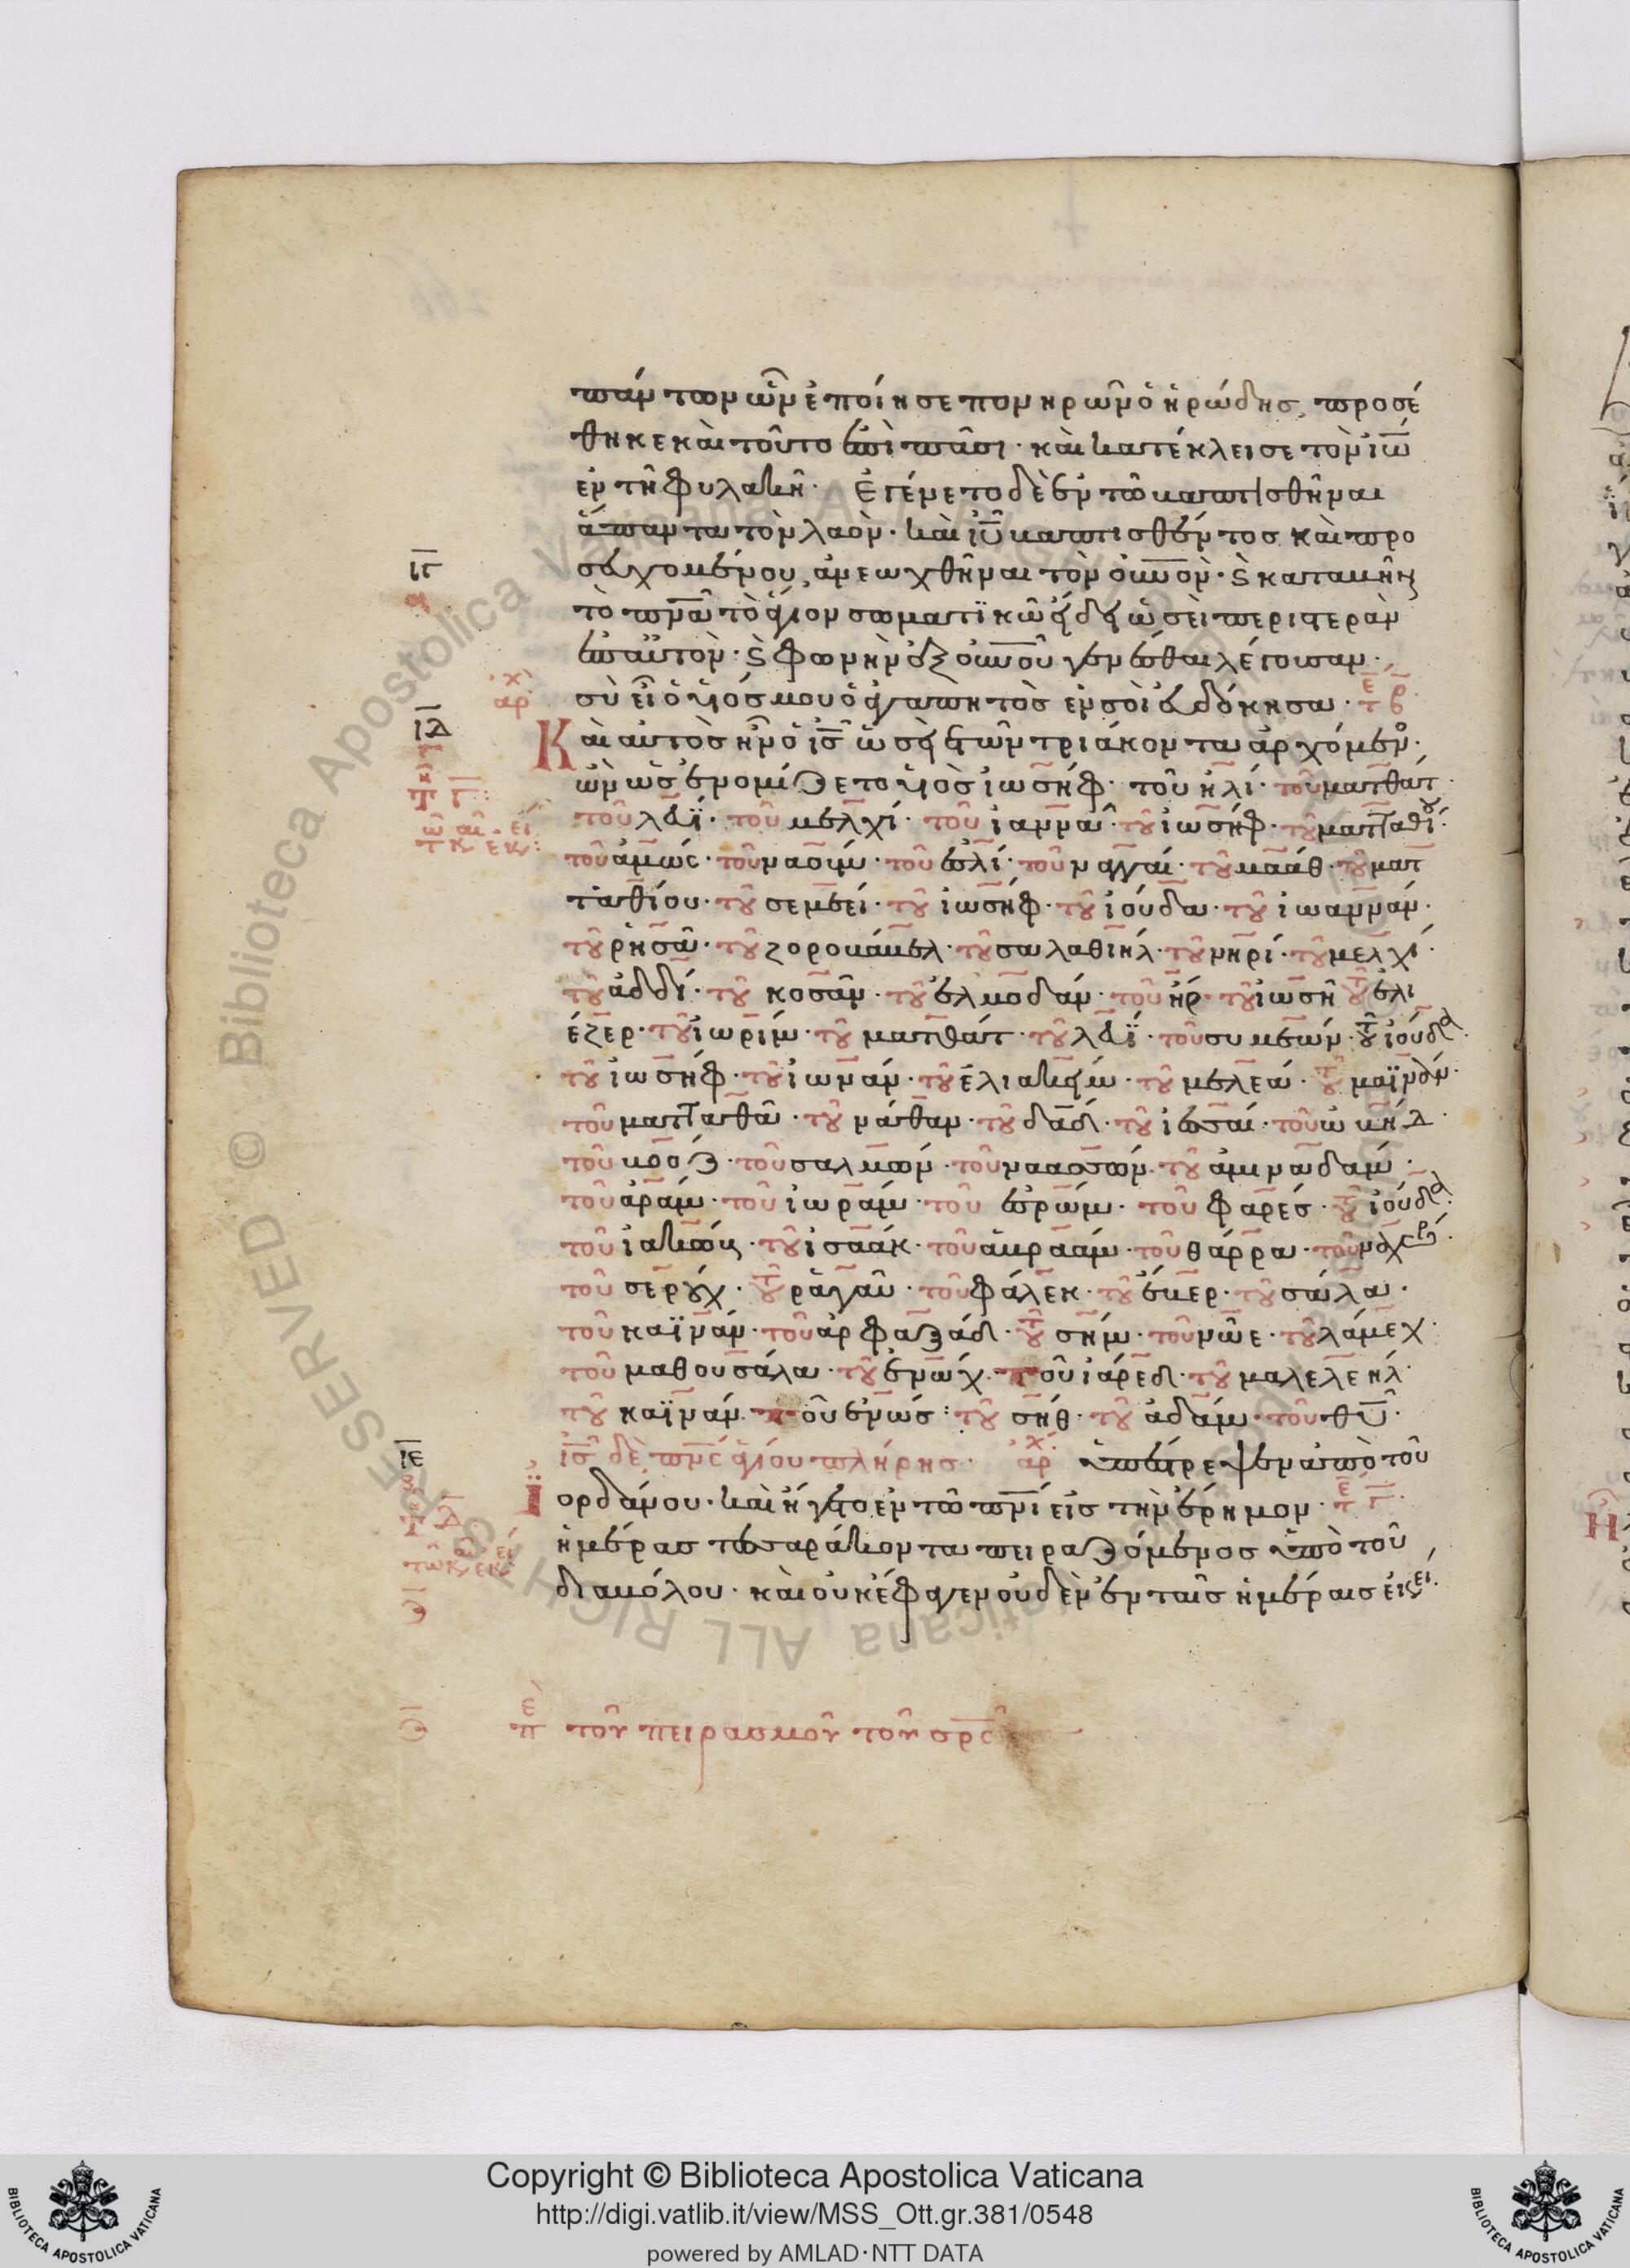 πάντων ὧν ἐποίησε πονηρῶν ὁ ἡρώδης, προσέ
θηκε καὶ τοῦτο ἐπὶ πᾶσι· καὶ κατέκλεισε τὸν ἰω̅
ἐν τῆ φυλακῆ· Ἐγένετο δὲ ἐν τῶ βαπτισθῆναι
ἅπαντα τὸν λαὸν· καὶ ἰ̅υ̅ βαπτισθέντος καὶ προ
σευχομένου, ἀνεωχθῆναι τὸν ο̅υ̅ν̅ο̅ν· ϗ καταβῆναι
τὸ π̅ν̅α̅ τὸ ἅγιον σωματϊκῶ εἴδει ὡσεὶ περιστερὰν
ἐπ' αὐτὸν· ϗ φωνὴν ἐξ ο̅υ̅ν̅ο̅ῦ γενέσθαι λέγουσαν·
σὺ εἶ ὁ υἱός μου ὁ ἀγαπητὸς ἐν σοὶ εὐδόκησα·
Καὶ αὐτὸς ἦν ὁ ι̅ς̅ ὡσεὶ ἐτῶν τριάκοντα ἀρχόμεν·
ὢν ὡς ἐνομίζετο υἱὸς ἰωσήφ· τοῦ ἠλί· τοῦ ματθάτ·
τοῦ λευΐ· τοῦ μελχί· τοῦ ἰαννα· τοῦ ἰωσήφ· τοῦ ματταθίου·
τοῦ ἀμώς· τοῦ ναούμ· τοῦ ἐσλί· τοῦ ναγγαί· τοῦ μαάθ· τοῦ ματ
ταθίου· τοῦ σεμεεί· τοῦ ἰωσήφ· τοῦ ἰούδα· τοῦ ἰωαννάν·
τοῦ ῥησᾶ· τοῦ ζοροβάβελ· τοῦ σαλαθιήλ· τοῦ νηρί· τοῦ μελχί·
τοῦ ἀδδί· τοῦ κοσᾶν· τοῦ ἐλμοδάν· τοῦ ἤρ· τοῦ ἰωσῆ τοῦ ἐλι
έζερ· τοῦ ἰωρίμ· τοῦ ματθάτ· τοῦ λευΐ· τοῦ συμεών· τοῦ ἰούδα·
τοῦ ἰωσήφ· τοῦ ἰωνάν· τοῦ ἐλιακείμ· τοῦ μελεά· τοῦ μαϊνάν·
τοῦ ματταθᾶ· τοῦ νάθαν· τοῦ δ̅α̅δ̅· τοῦ ἰεσσαί· τοῦ ὠβήδ·
τοῦ βοόζ· τοῦ σαλμών· τοῦ ναασσών· τοῦ ἀμιναδάμ·
τοῦ ἀράμ· τοῦ ἰωράμ· τοῦ ἐσρώμ· τοῦ φαρές· τοῦ ἰούδα·
τοῦ ἰακώβ· τοῦ ἰσαάκ· τοῦ ἀβραάμ· τοῦ θάρρα· τοῦ ναχώρ·
τοῦ σερούχ· τοῦ ῥαγαῦ· τοῦ φάλεκ· τοῦ ἔβερ· τοῦ σάλα·
τοῦ καϊνάν· τοῦ ἀρφαξάδ· τοῦ σήμ· τοῦ νῶε· τοῦ λάμεχ·
τοῦ μαθουσάλα· τοῦ ἐνώχ· τοῦ ἰάρεδ· τοῦ μαλελεήλ·
τοῦ καϊνάν· τοῦ ἐνώς· τοῦ σήθ· τοῦ ἀδάμ· τοῦ θ̅υ̅·
ι̅ς̅ δὲ π̅ν̅ς̅ ἁγίου πλήρης· ἀρχ ὑπέστρεψεν ἀπὸ τοῦ
ἰορδάνου· καὶ ἤγετο ἐν τῶ π̅ν̅ι̅ εἰς τὴν ἔρημον·
ἡμέρας τεσσαράκοντα πειραζόμενος ὑπὸ τοῦ
διαβόλου· καὶ οὐκ ἔφαγεν οὐδὲν ἐν ταῖς ἡμέραις ἐκεί
πε τοῦ πειρασμοῦ τοῦ σ̅ρ̅ς̅
Biblioteca Apostolica Vaticana ALL RIGHTS RESERVED ©
Copyright © Biblioteca Apostolica Vaticana
http://digi.vatlib.it/view/MSS_Ott.gr.381/0548
powered by AMLAD·NTT DATA
BIBLIOTECA APOSTOLICA VATICANA
BIBLIOTECA APOSTOLICA VATICANA